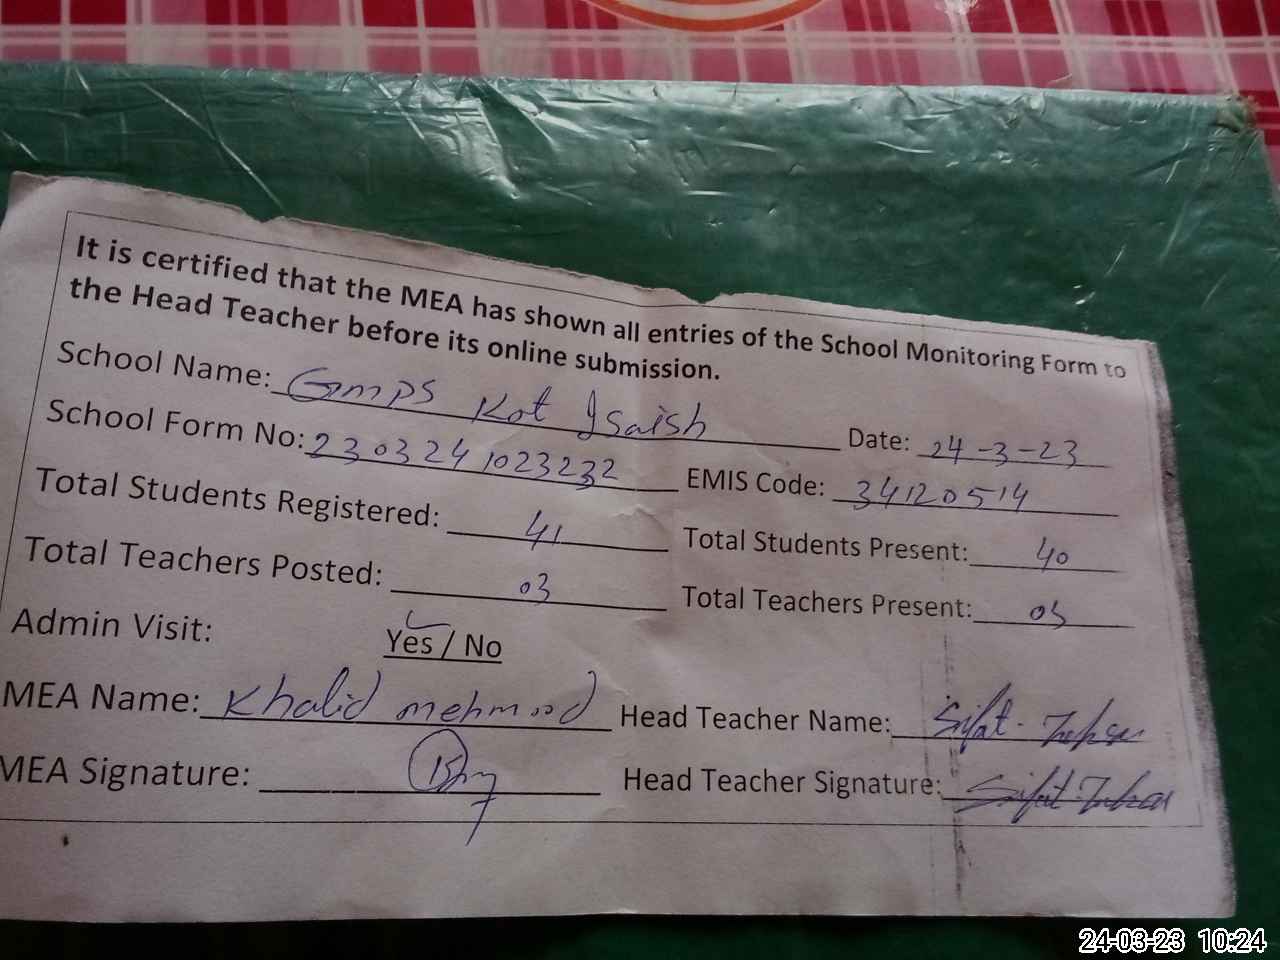 It is certified that the MEA has shown all entries of the School Monitoring Form to
the Head Teacher before its online submission.
School Name: Gmps Kot Isaish Date: 24-3-23
School Form No: 2303241023232 EMIS Code: 34120514
Total Students Registered: 41 Total Students Present: 40
Total Teachers Posted: 03 Total Teachers Present: 03
Admin Visit: Yes / No
MEA Name: Khalid mehmood Head Teacher Name: Sifat
MEA Signature: Head Teacher Signature: Sifat
24-03-23 10:24